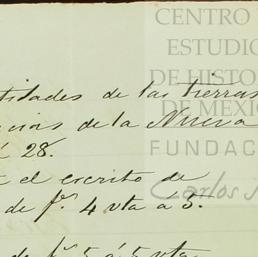 CENTRO
ESTUDIO
DE HISTO
DE MEXI
FUNDAC
Carlos
tidades de las tierras
cias de la Nueva
á 28.
el escrito de
de f. 4 vta á 5.
de f. 5 á 5 vta